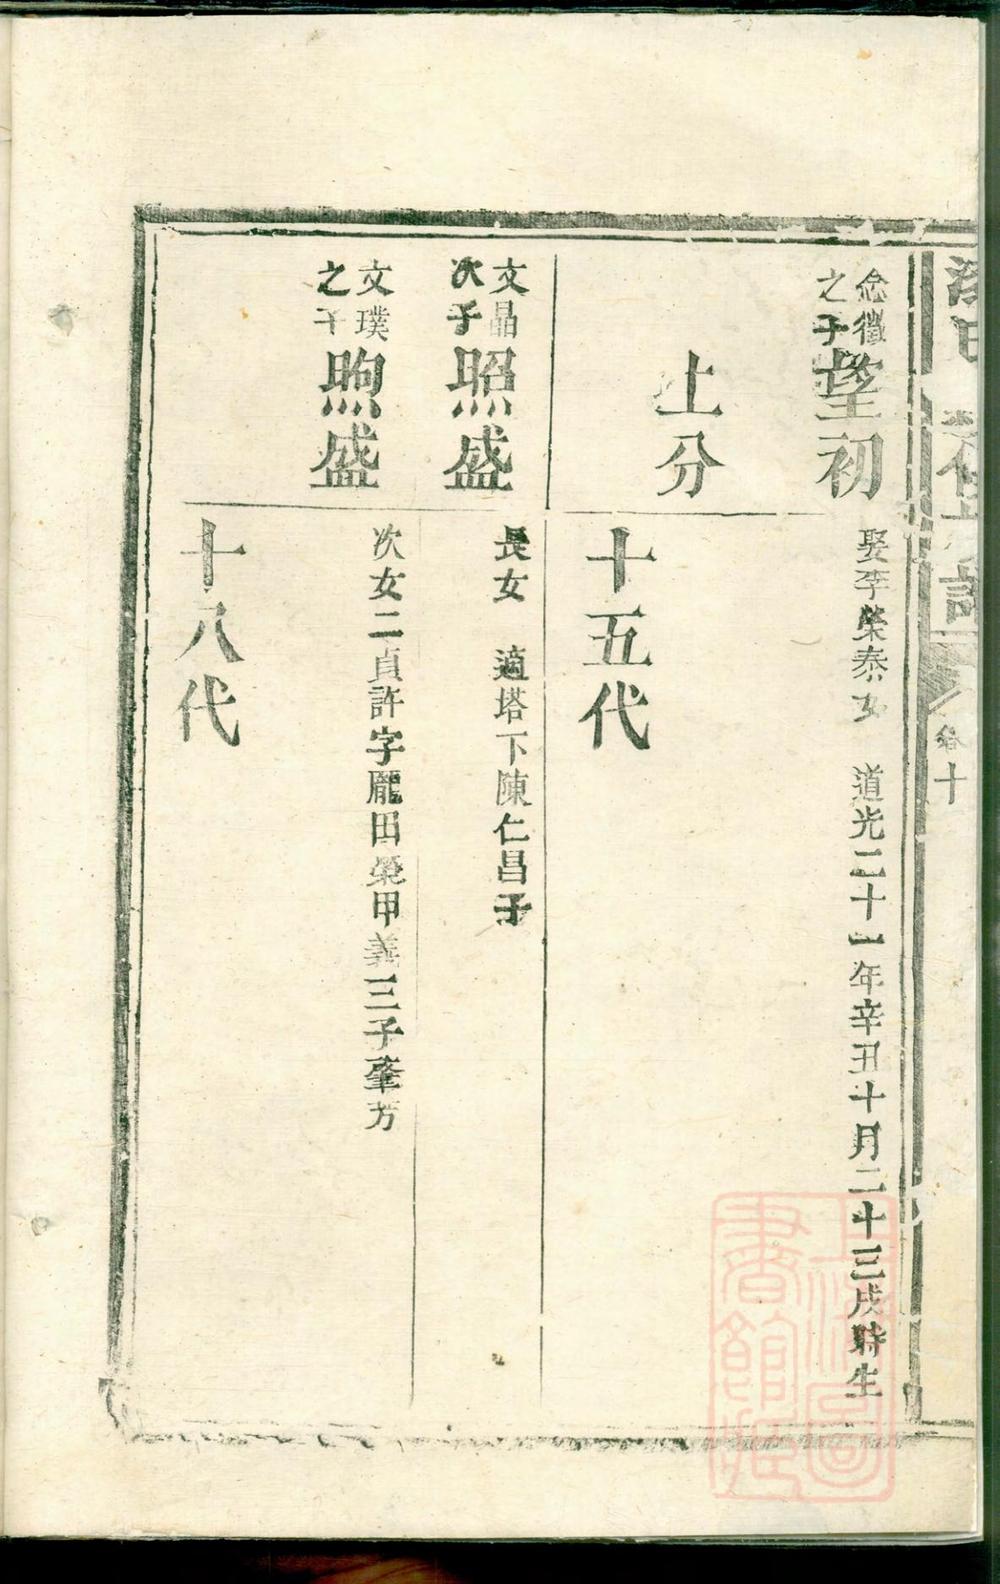 卷十
念徵
之子
望初
娶李榮泰女 道光二十一年辛丑十月二十三戌時生
上分
十五代
文晶
次子
照盛
長女 適塔下陳仁昌子
文璞
之子
煦盛
次女二貞許字龐田榮甲義三子肇芳
十八代